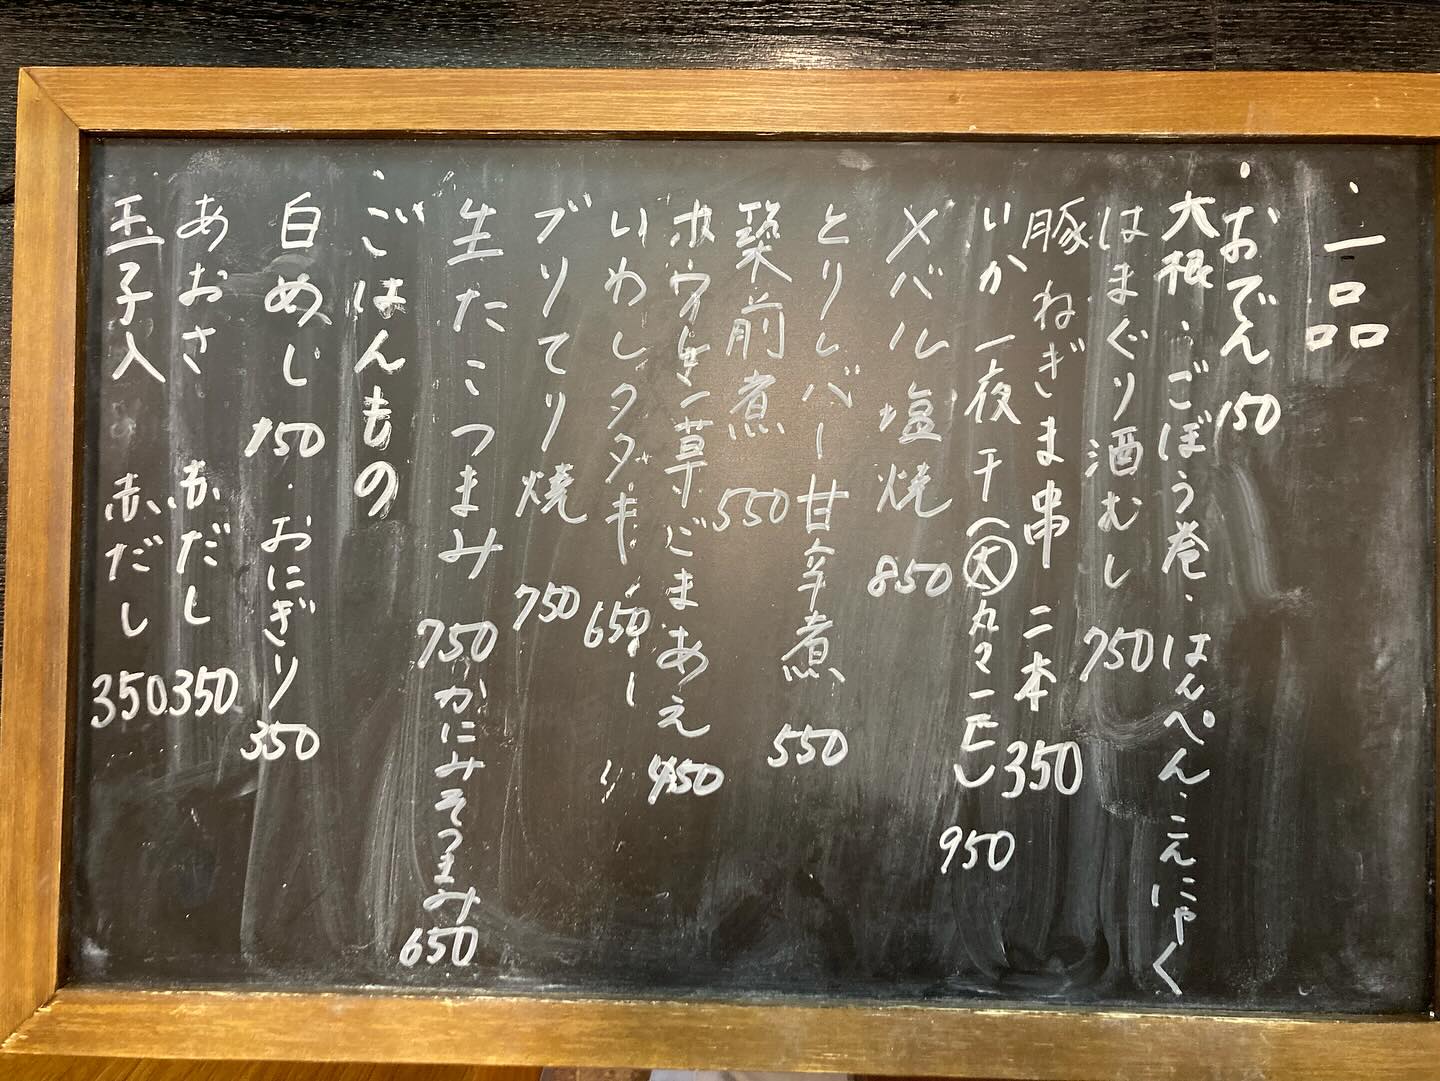 一品
・おでん 150
大根・ごぼう巻・はんぺん・こんにゃく
はまぐり酒むし 750
豚ねぎま串 二本 350
いか一夜干(大)丸々一匹 950
メバル塩焼 850
とりレバー甘辛煮 550
築前煮 550
ホウレン草ごまあえ 450
いわしタタキ 650
ブリてり焼 750
生たこつまみ 750 かにみそつまみ 650
・ごはんもの
白めし 150・おにぎり 350
あおさ 赤だし 350
玉子入 赤だし 350